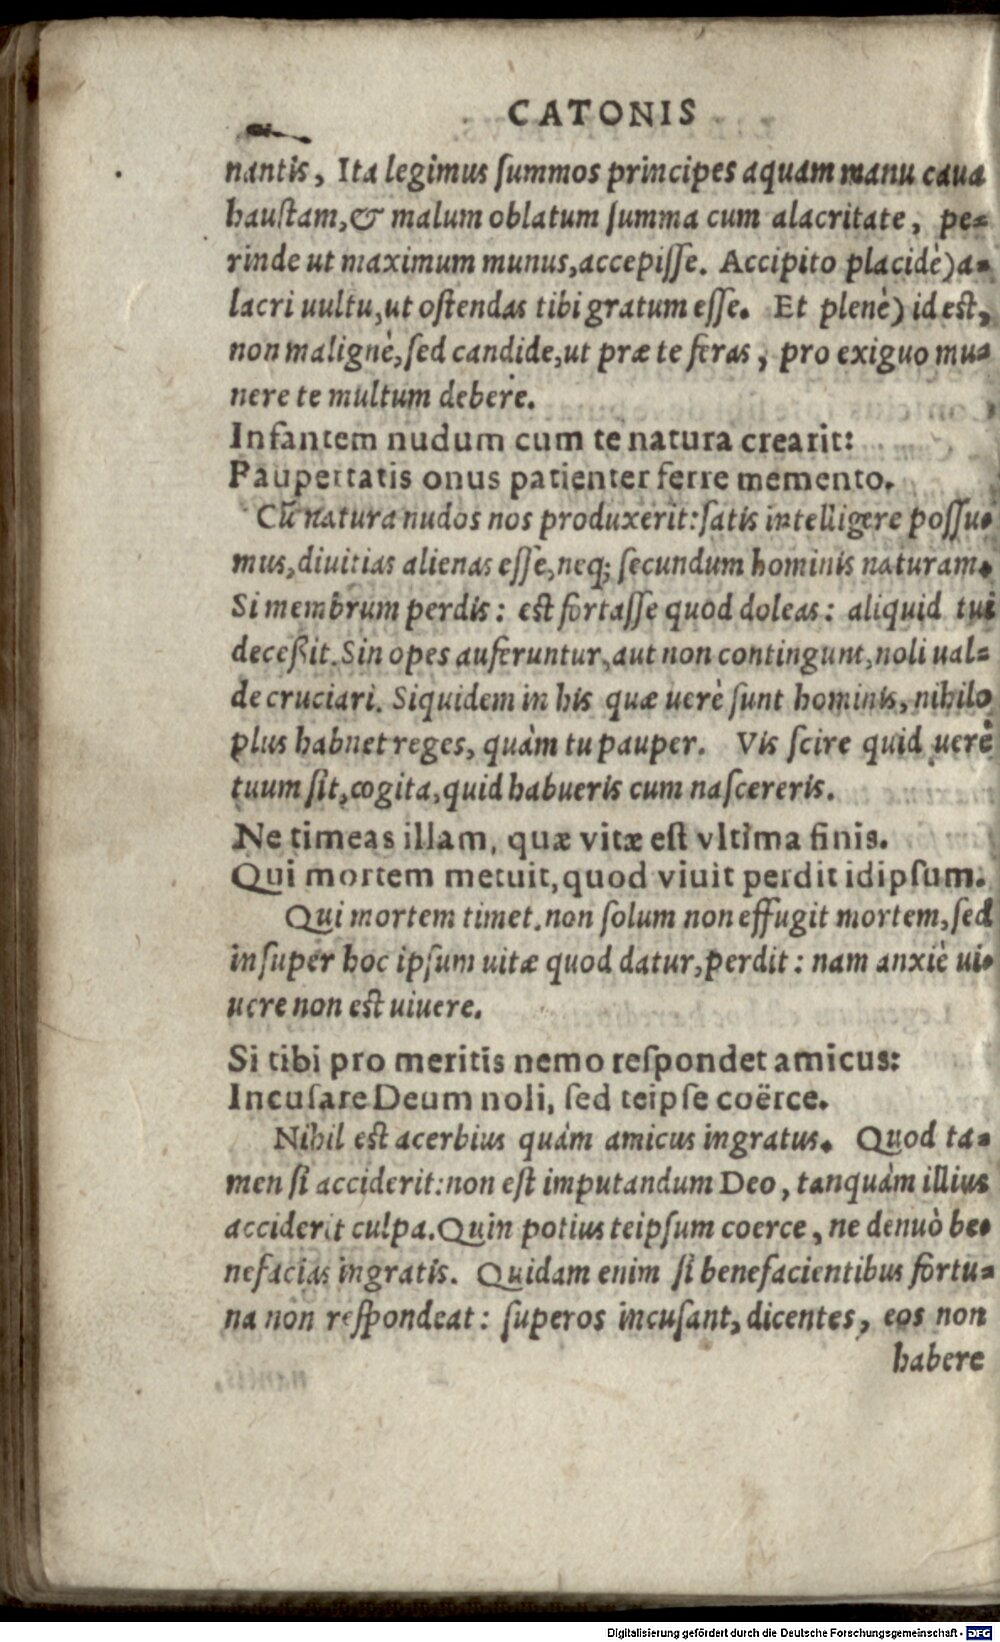 CATONIS
nantis, Ita legimus ſummos principes aquam manu caua
hauſtam,& malum oblatum ſumma cum alacritate, pe-
rinde ut maximum munus,accepiſſe. Accipito placidè)a-
lacri uultu,ut oſtendas tibi gratum eſſe. Et plenè) id eſt,
non malignè,ſed candide,ut præ te feras, pro exiguo mu-
nere te multum debere.
Infantem nudum cum te natura crearit:
Paupertatis onus patienter ferre memento.
Cū natura nudos nos produxerit:ſatis intelligere poſſu-
mus,diuitias alienas eſſe,neq; ſecundum hominis naturam.
Si membrum perdis: eſt fortaſſe quod doleas: aliquid tui
deceßit.Sin opes auferuntur,aut non contingunt,noli ual-
de cruciari. Siquidem in his quæ uerè ſunt hominis, nihilo
plus habnet reges, quàm tu pauper. Vis ſcire quid uerè
tuum ſit,cogita,quid habueris cum naſcereris.
Ne timeas illam, quæ vitæ eſt vltima finis.
Qui mortem metuit,quod viuit perdit idipſum.
Qui mortem timet.non ſolum non effugit mortem,ſed
inſuper hoc ipſum uitæ quod datur,perdit: nam anxiè ui-
uere non eſt uiuere.
Si tibi pro meritis nemo reſpondet amicus:
Incuſare Deum noli, ſed teipſe coërce.
Nihil eſt acerbius quàm amicus ingratus. Quod ta-
men ſi acciderit:non eſt imputandum Deo, tanquàm illius
acciderit culpa.Quin potius teipſum coerce, ne denuò be-
nefacias ingratis. Quidam enim ſi benefacientibus fortu-
na non reſpondeat: ſuperos incuſant, dicentes, eos non
habere
Digitalisierung gefördert durch die Deutsche Forschungsgemeinschaft - DFG